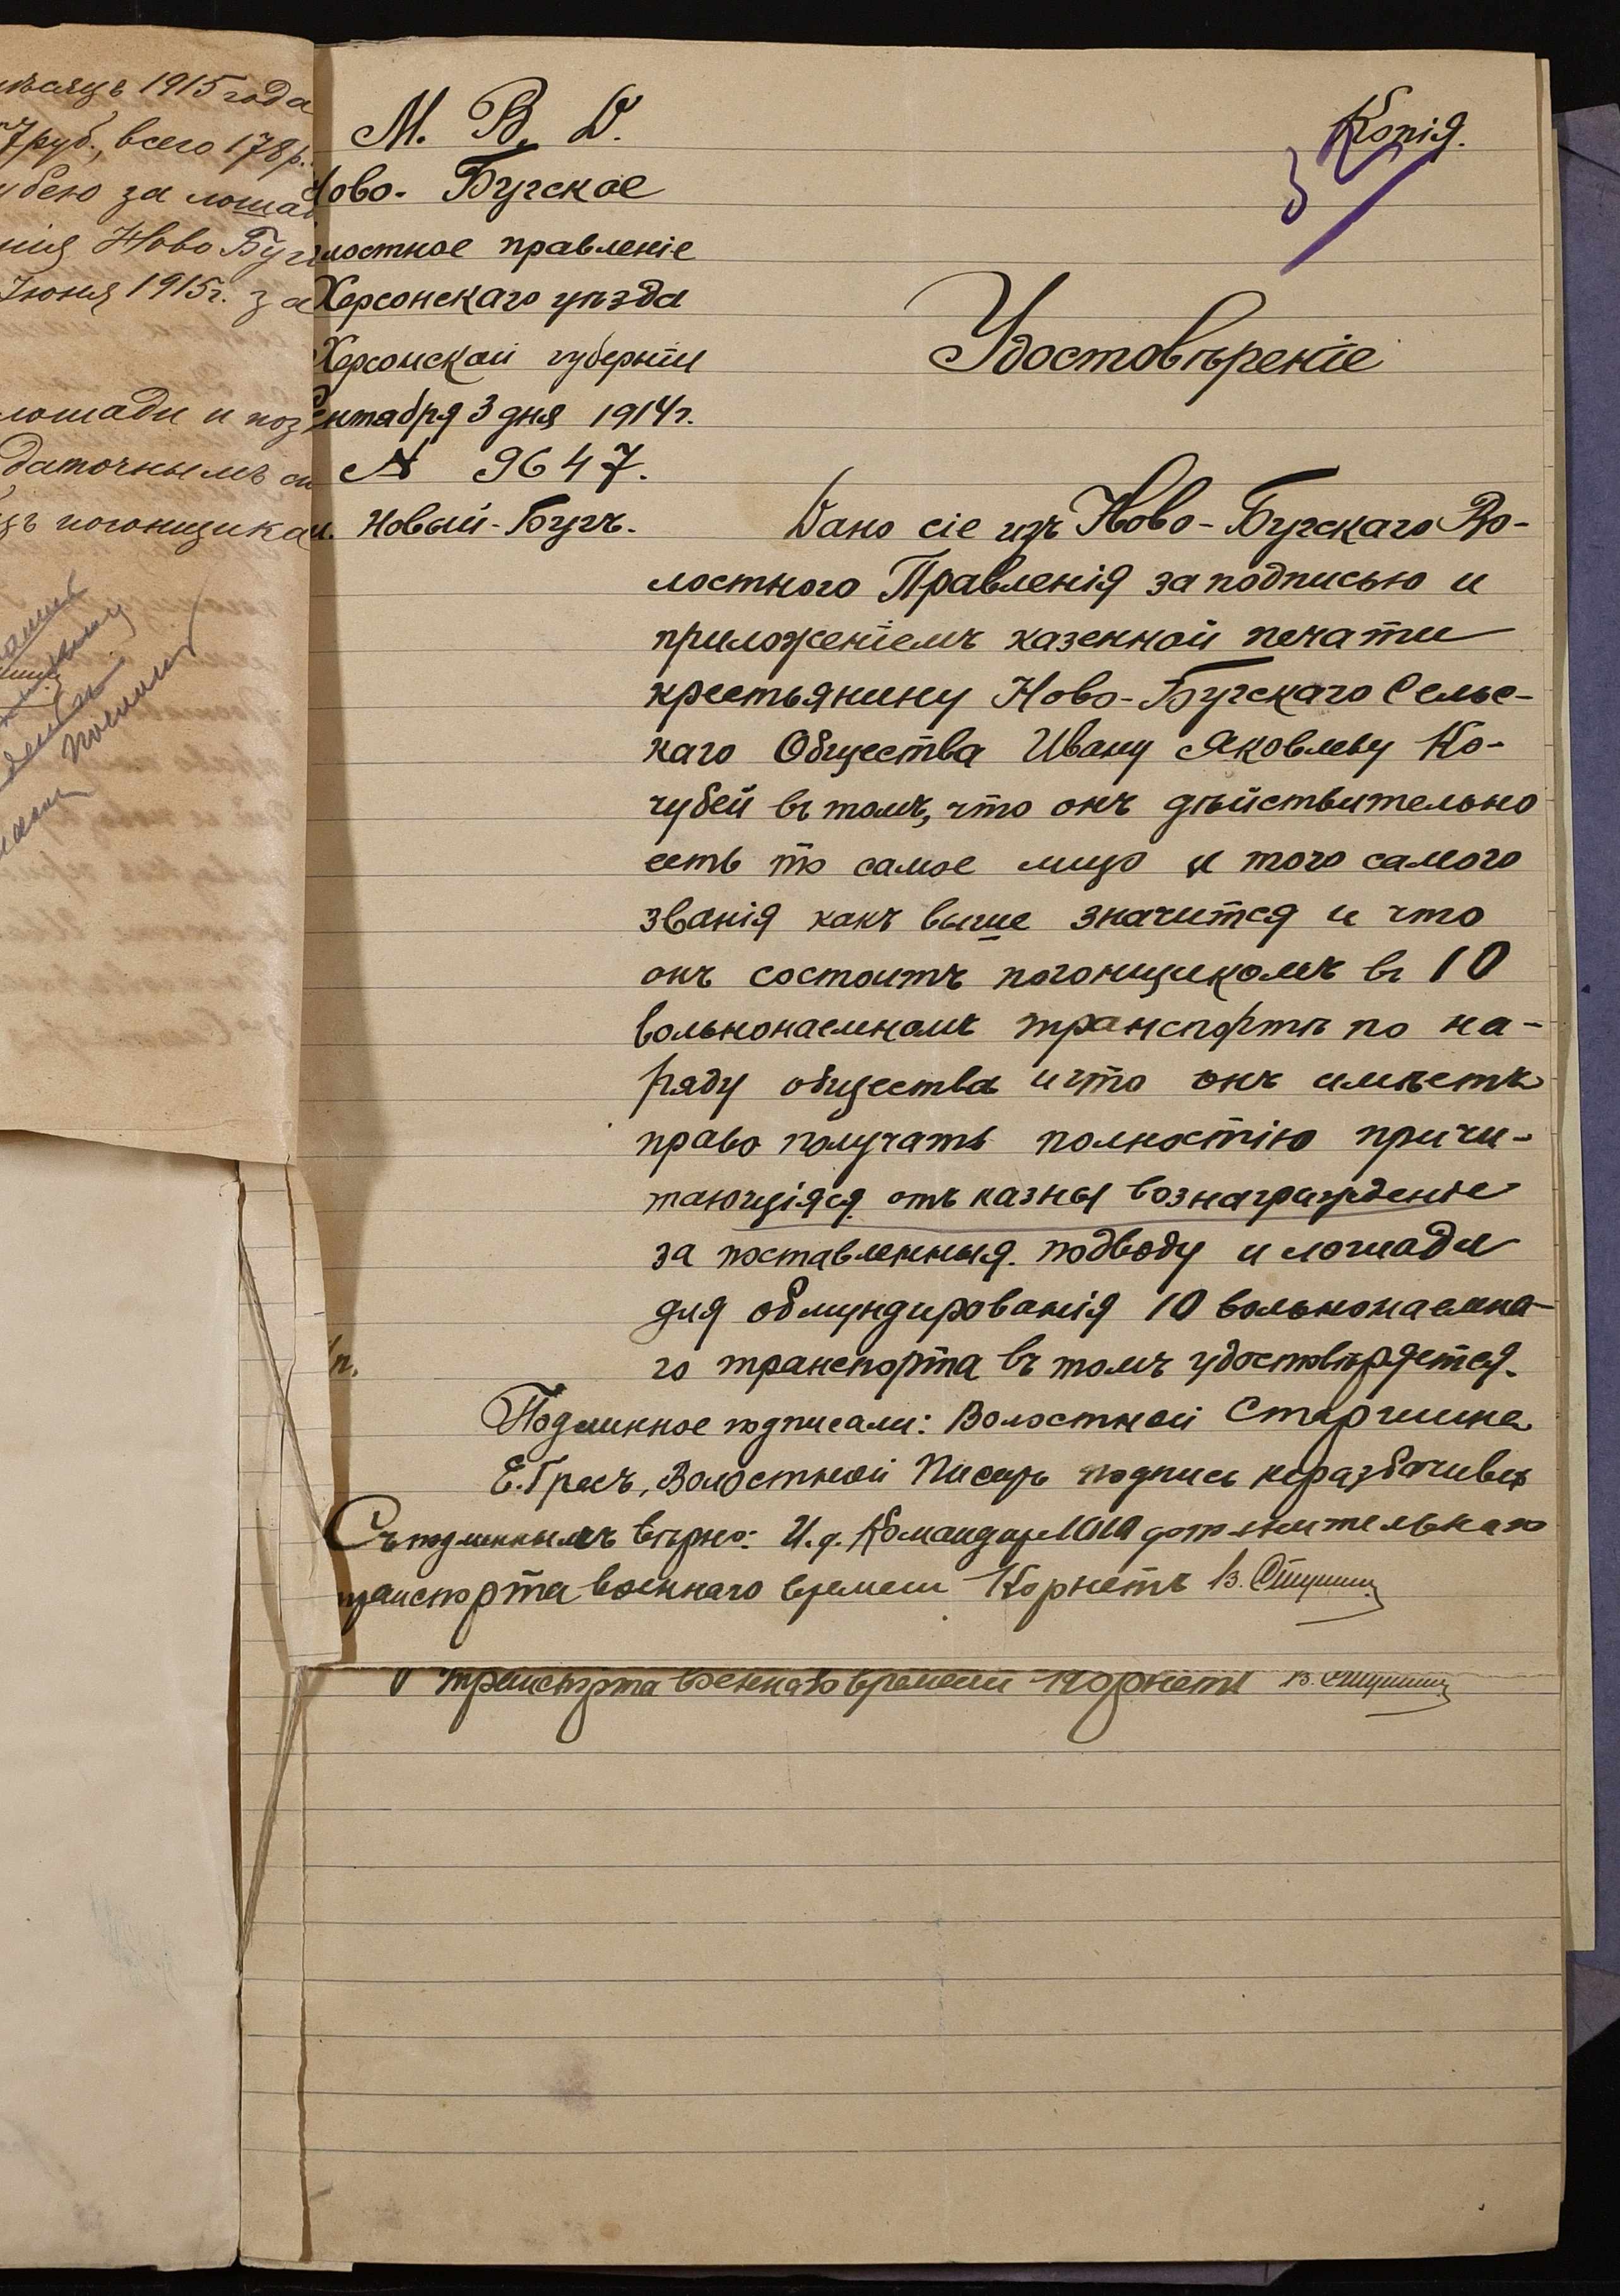 мѣсяцъ 1915 года
7 руб., всего 178 р.
убею за лошад
нія Ново Буг
Іюня 1915 г. за
лошади и поз
даточнымъ
погонщика
М. В. Д.
Копія.
Ново-Бугское
лостное правленіе
Херсонскаго уѣзда
Херсонской губерніи
Удостовѣреніе
ентября 3 дня 1914 г.
№ 9647.
м. Новый-Бугъ.
Дано сіе изъ Ново-Бугскаго Во-
лостного Правленія за подписью и
приложеніемъ казенной печати
крестьянину Ново-Бугскаго Сельс-
каго Общества Ивану Яковлеву Ко-
чубей въ томъ, что онъ дѣйствительно
есть то самое лицо и того самого
званія какъ выше значится и что
онъ состоитъ погонщикомъ въ 10
вольнонаемномъ транспортѣ по на-
ряду общества и что онъ имѣетъ
право получать полностію причи-
тающіяся отъ казны вознагражденіе
за поставленныя подводу и лошади
для обмундированія 10 вольнонаемна-
го транспорта въ томъ удостовѣряется.
Подлинное подписали: Волостной Старшина
Е. Гресь, Волостной Писарь подпись неразборчива
Съ подлиннымъ вѣрно: И. д. Командира 1019 дополнительнаго
транспорта военнаго времени Корнетъ В.
транспорта военнаго времени Корнетъ В.